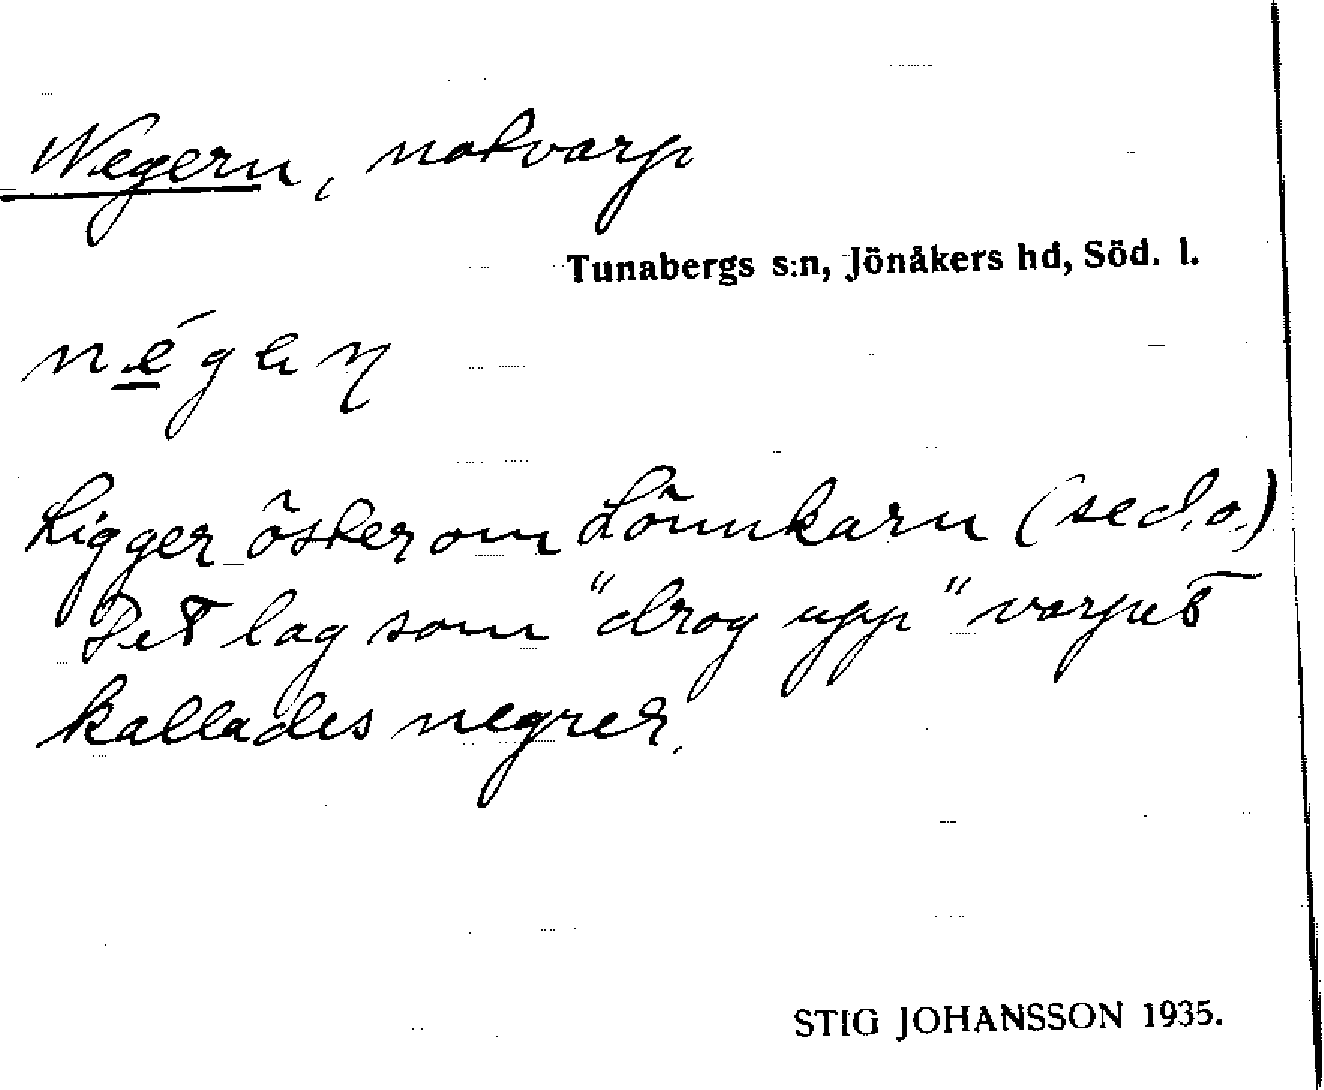 Negern, notvarp
Tunabergs s:n, Jönåkers hd, Söd. l.
Ligger öster om Lönnkarn (se d.o.)
Det lag som "drog upp" varpet
kallades negrer.
STIG JOHANSSON 1935.